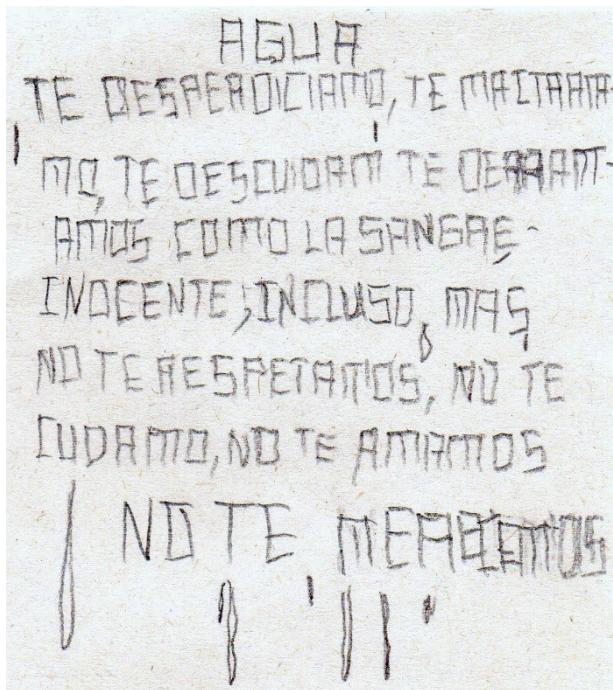 AGUA
TE DESPERDICIAMO, TE MALTRATA-
MO, TE DESCUIDAM TE DERRAM-
AMOS COMO LA SANGRE-
INOCENTE, INCLUSO, MAS
NO TE RESPETAMOS, NO TE
CUDAMO, NO TE AMAMOS
NO TE MERECEMOS